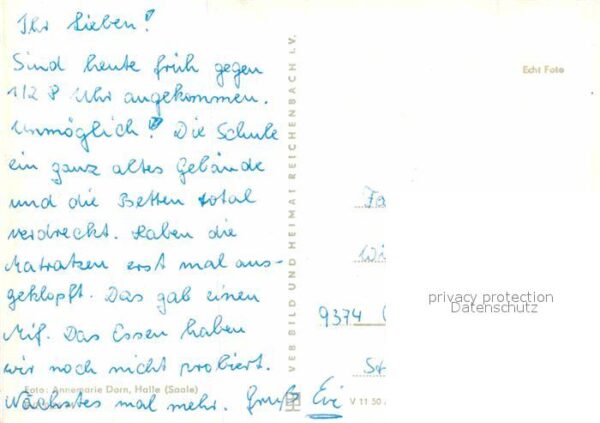 Ihr Lieben!
Sind heute früh gegen
1/2 8 Uhr angekommen.
Unmöglich! Die Schule
ein ganz altes Gebäude
und die Betten total
verdreckt. Haben die
Matratzen erst mal aus-
geklopft. Das gab einen
Mif. Das Essen haben
wir noch nicht probiert.
Nächstes mal mehr. Gruß Evi
Foto: Annemarie Dorn, Halle (Saale)
VEB BILD UND HEIMAT REICHENBACH I.V.
Echt Foto
Fa
Wi
9374
St
V 11 50
privacy protection
Datenschutz